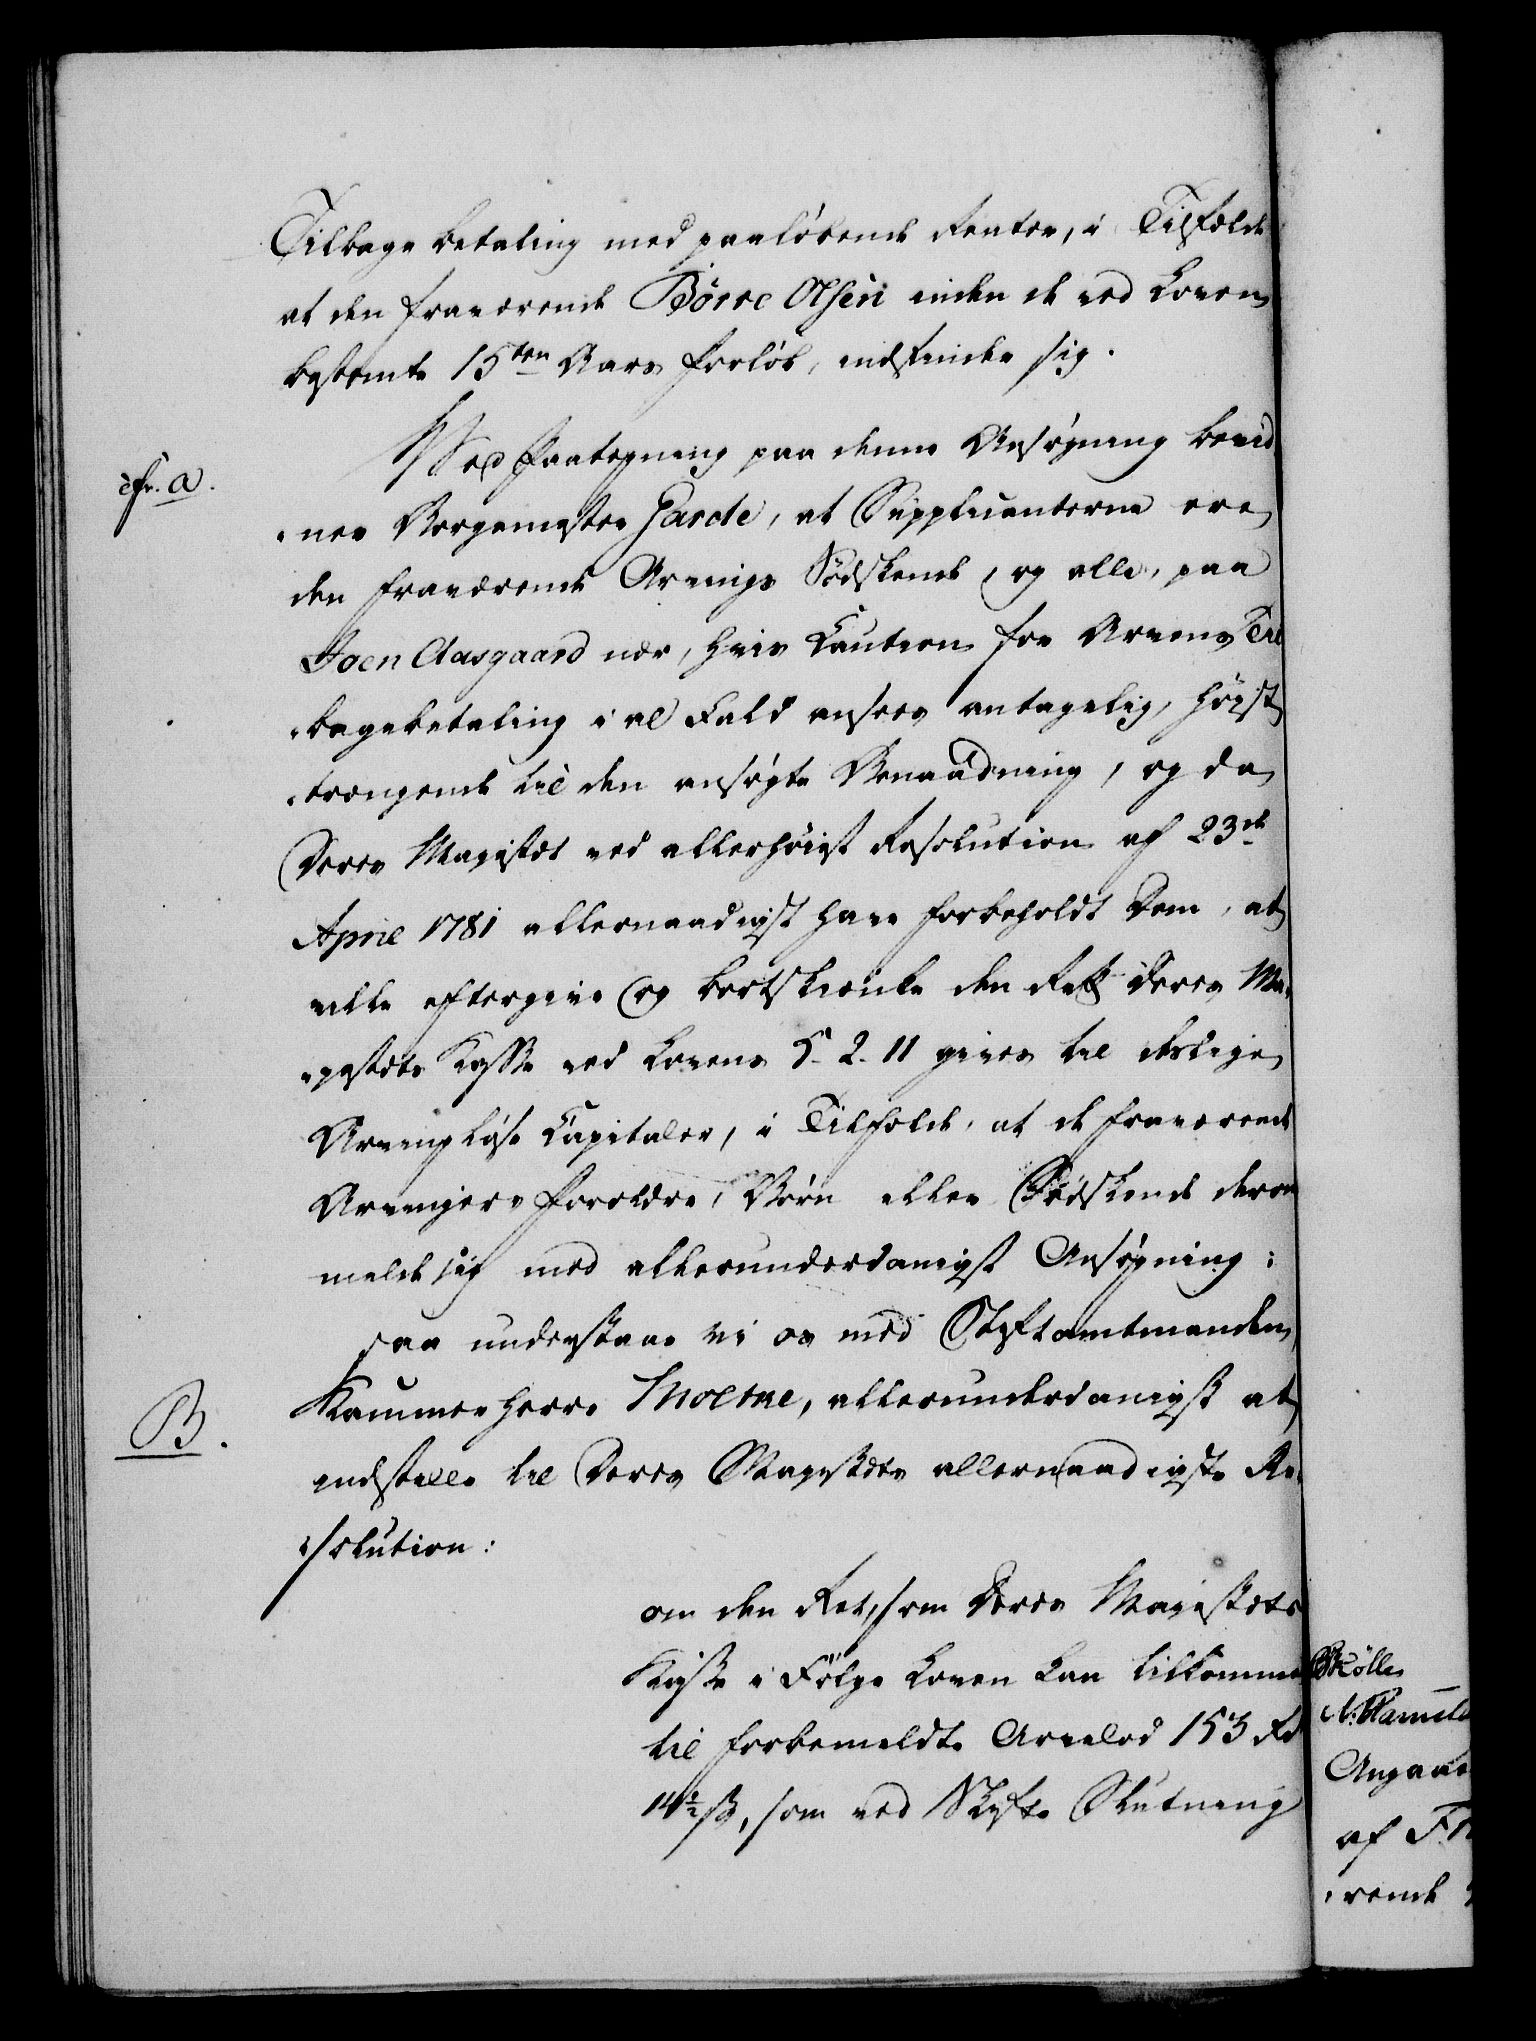 Tilbage betaling med paaløbende Renter, i Tilfælde
at den fraværende Børre Olsen inden de ved Loven
bestemte 15ten Aars Forløb, indfinder sig.
cfr. a.
Med Paategning paa denne Ansøgning bevid
„ner Borgemester Garde, at Supplicanterne ere
den fraværende Arvings Södskende, og alle, paa
Joen Aasgaard nær, hvis Caution for Arvens Til
„bagebetaling i al Fald ansees antagelig, høist
„trængende til den ansøgte Benaadning, og da
Deres Majestæt ved allerhöiest Resolution af 23de
April 1781 allernaadigst have forbeholdt Dem, at
ville eftergive og bortskienke den Ret Deres Ma„
„jestæts Kasse ved Lovens 5. 2. 11 gives til deslige
Arvingløse Capitaler, i Tilfælde, at de fraværende
Arvingers Forældre, Børn eller Södskende derom
melde sig med allerunderdanigst Ansøgning:
saa understaae vi os med Stiftamtmanden,
B.
Kammerherre Moltke, allerunderdanigst at
indstille til Deres Majestæts allernaadigste Re„
„solution:
om den Ret, som Deres Majestæts
Kasse i Følge Loven kan tilkomme
til forbemeldte Arvelod 153 Rd
14½ ß, som ved Skifte Slutning
Angaae
af F.
„rende